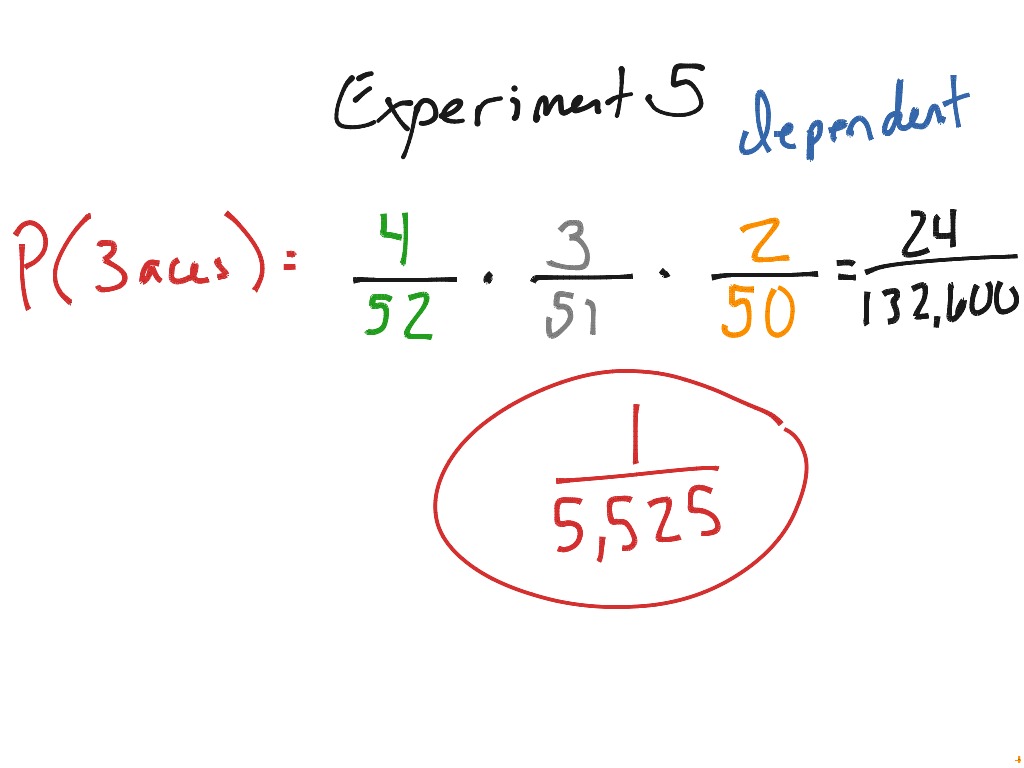 Experiment 5 dependent
P(3 aces) = 4/52 · 3/51 · 2/50 = 24/132,600
1/5,525